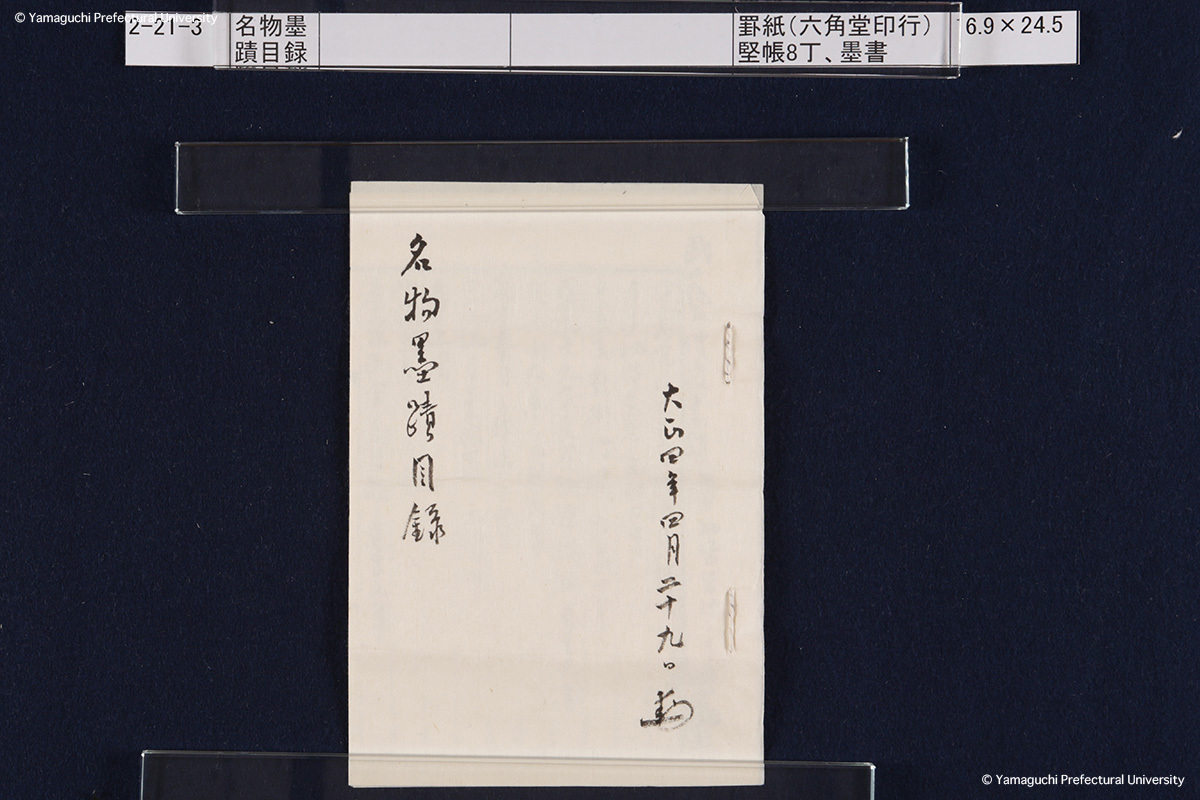 © Yamaguchi Prefectural University
2-21-3
名物墨
蹟目録
罫紙(六角堂印行)
堅帳8丁、墨書
6.9×24.5
大正四年四月二十九日
名物墨蹟目録
© Yamaguchi Prefectural University